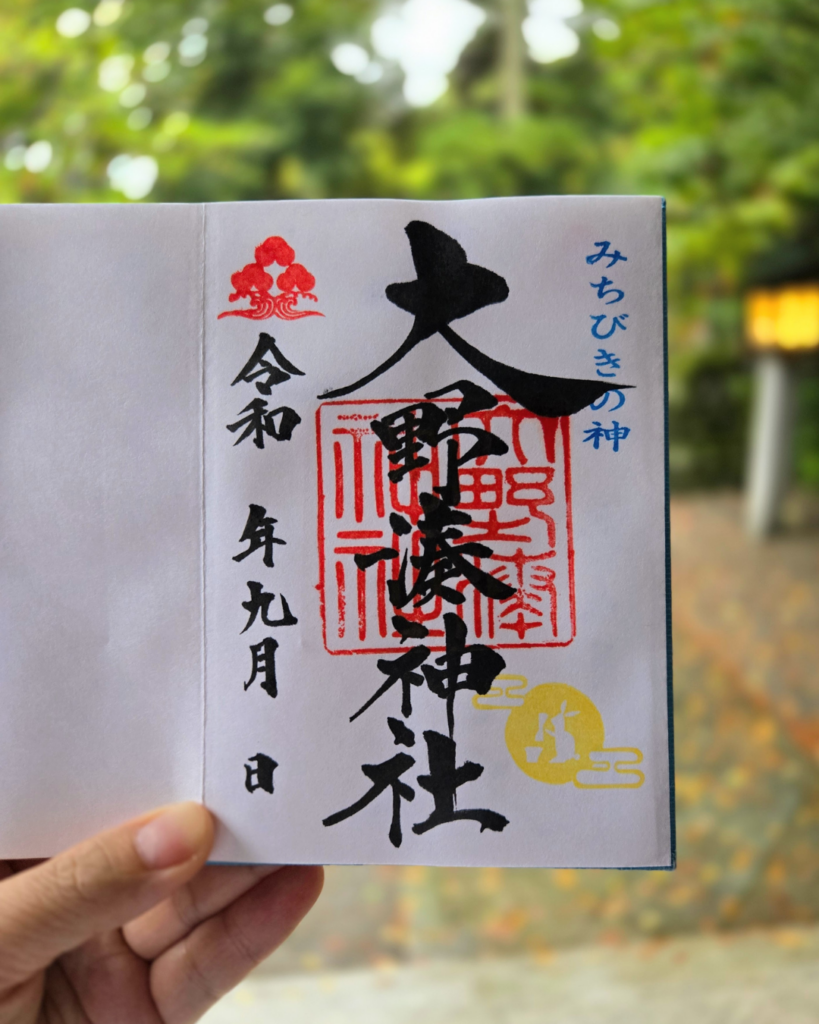 みちびきの神
大野湊神社
大野湊神社
令和 年九月 日